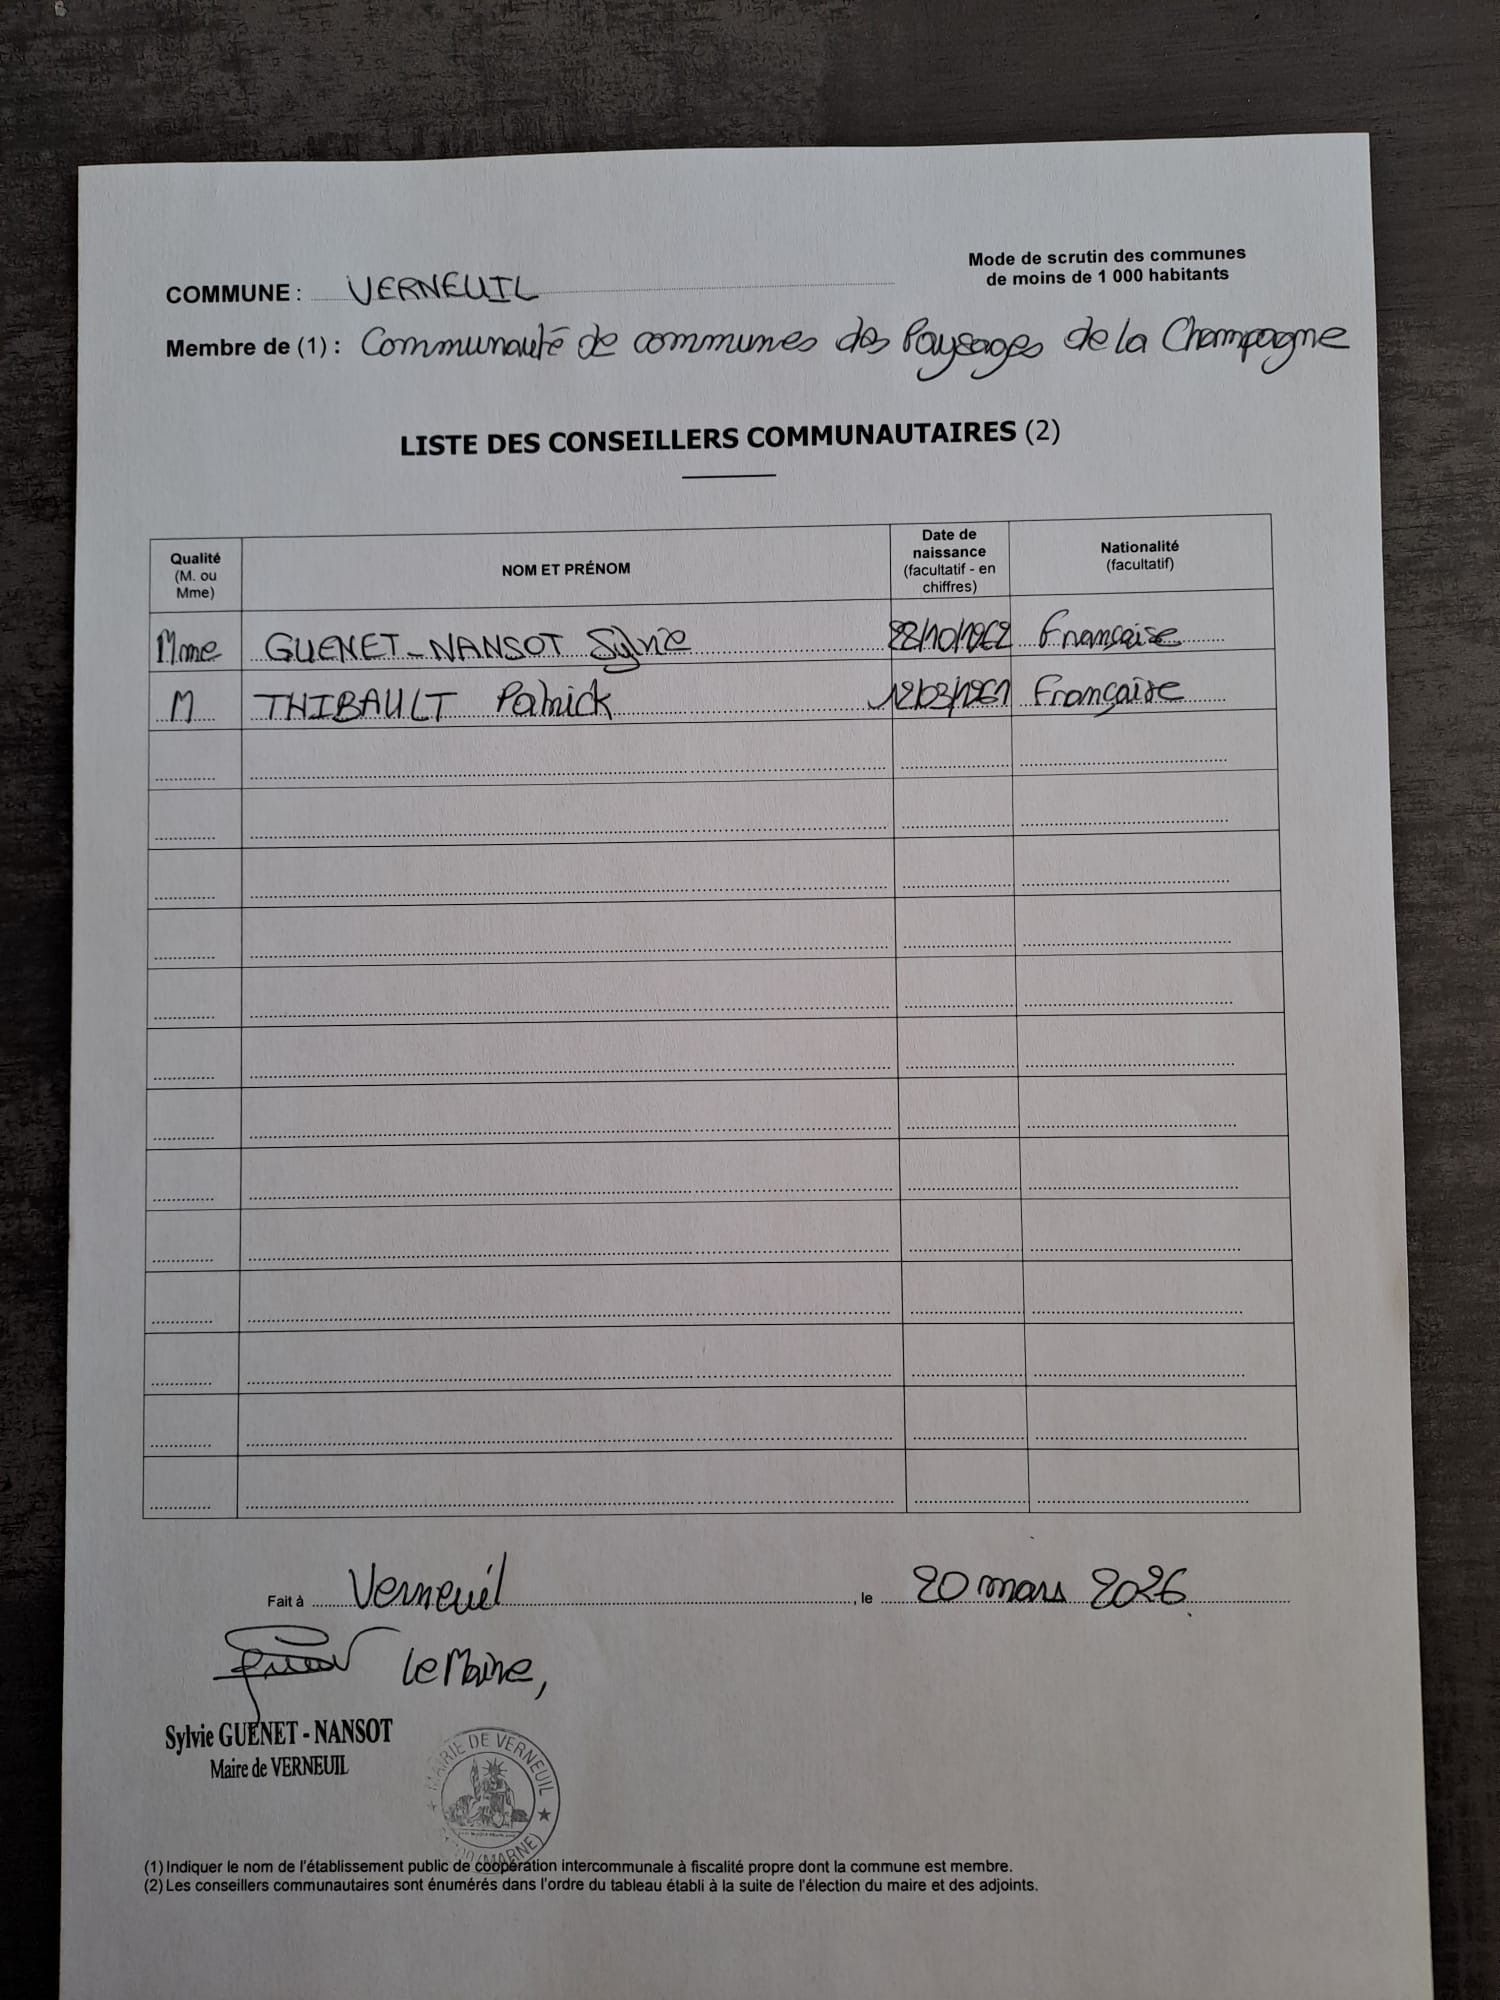 Mode de scrutin des communes
de moins de 1 000 habitants
COMMUNE : VERNEUIL
Membre de (1) : Communauté de communes des Paysages de la Champagne
LISTE DES CONSEILLERS COMMUNAUTAIRES (2)
Qualité (M. ou Mme) NOM ET PRÉNOM Date de naissance (facultatif - en chiffres) Nationalité (facultatif)
Mme GUENET-NANSOT Sylvie 22/10/1962 Française
M THIBAULT Patrick 12/03/1961 Française
Fait à Verneuil, le 20 mars 2026
Le Maire,
Sylvie GUENET - NANSOT
Maire de VERNEUIL
MAIRIE DE VERNEUIL
(MARNE)
(1) Indiquer le nom de l'établissement public de coopération intercommunale à fiscalité propre dont la commune est membre.
(2) Les conseillers communautaires sont énumérés dans l'ordre du tableau établi à la suite de l'élection du maire et des adjoints.